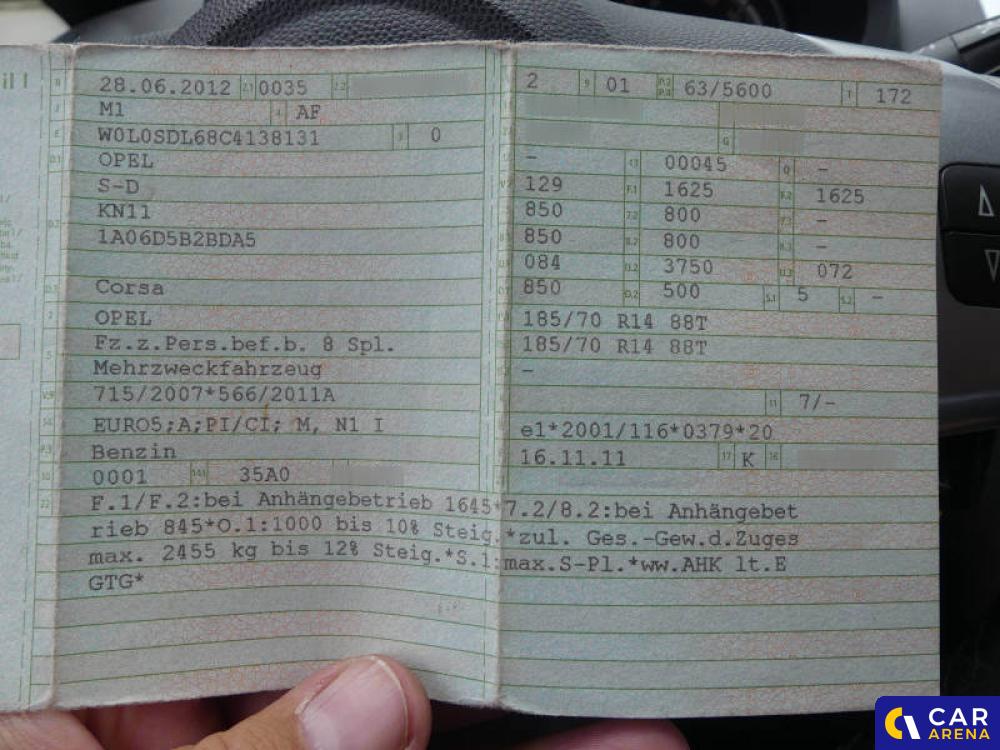 il I
B 28.06.2012 2.1 0035 2.2
J M1 4 AF
E W0L0SDL68C4138131 3 0
D.1 OPEL
S-D
D.2 KN11
1A06D5B2BDA5
D.3 Corsa
2 OPEL
5 Fz.z.Pers.bef.b. 8 Spl.
Mehrzweckfahrzeug
V.9 715/2007*566/2011A
14 EURO5;A;PI/CI; M, N1 I
P.3 Benzin
10 0001 14.1 35A0
2 9 01 P.2 P.4 63/5600 T 172
G
- 13 00045 Q -
V.7 129 F.1 1625 F.2 1625
850 7.2 800 7.3 -
850 8.2 800 8.3 -
084 U.2 3750 U.3 072
850 O.2 500 S.1 5 S.2 -
185/70 R14 88T
185/70 R14 88T
-
11 7/-
e1*2001/116*0379*20
16.11.11 17 K 16
22 F.1/F.2:bei Anhängebetrieb 1645*7.2/8.2:bei Anhängebet
rieb 845*O.1:1000 bis 10% Steig.*zul. Ges.-Gew.d.Zuges
max. 2455 kg bis 12% Steig.*S.1:max.S-Pl.*ww.AHK lt.E
GTG*
CAR
ARENA